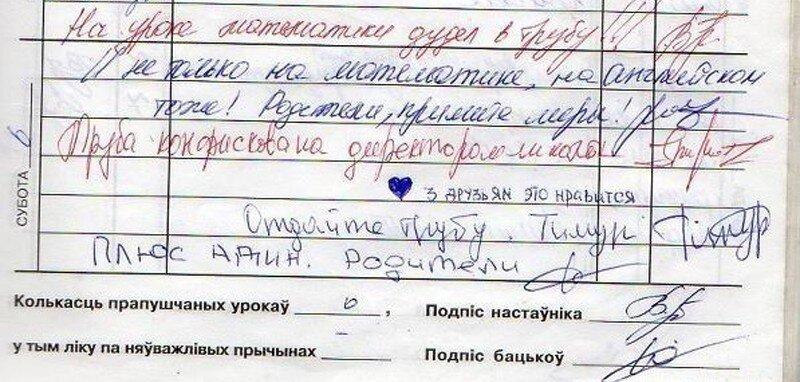 На уроке математики дудел в трубу!!!
И не только на математике, на английском
тоже! Родители, примите меры!
Труба конфискована директором школы
СУБОТА 6
3 друзьям это нравится
Отдайте трубу. Тимур
Плюс один. Родители
Колькасць прапушчаных урокаў 6, Подпіс настаўніка
у тым ліку па няўважлівых прычынах – Подпіс бацькоў